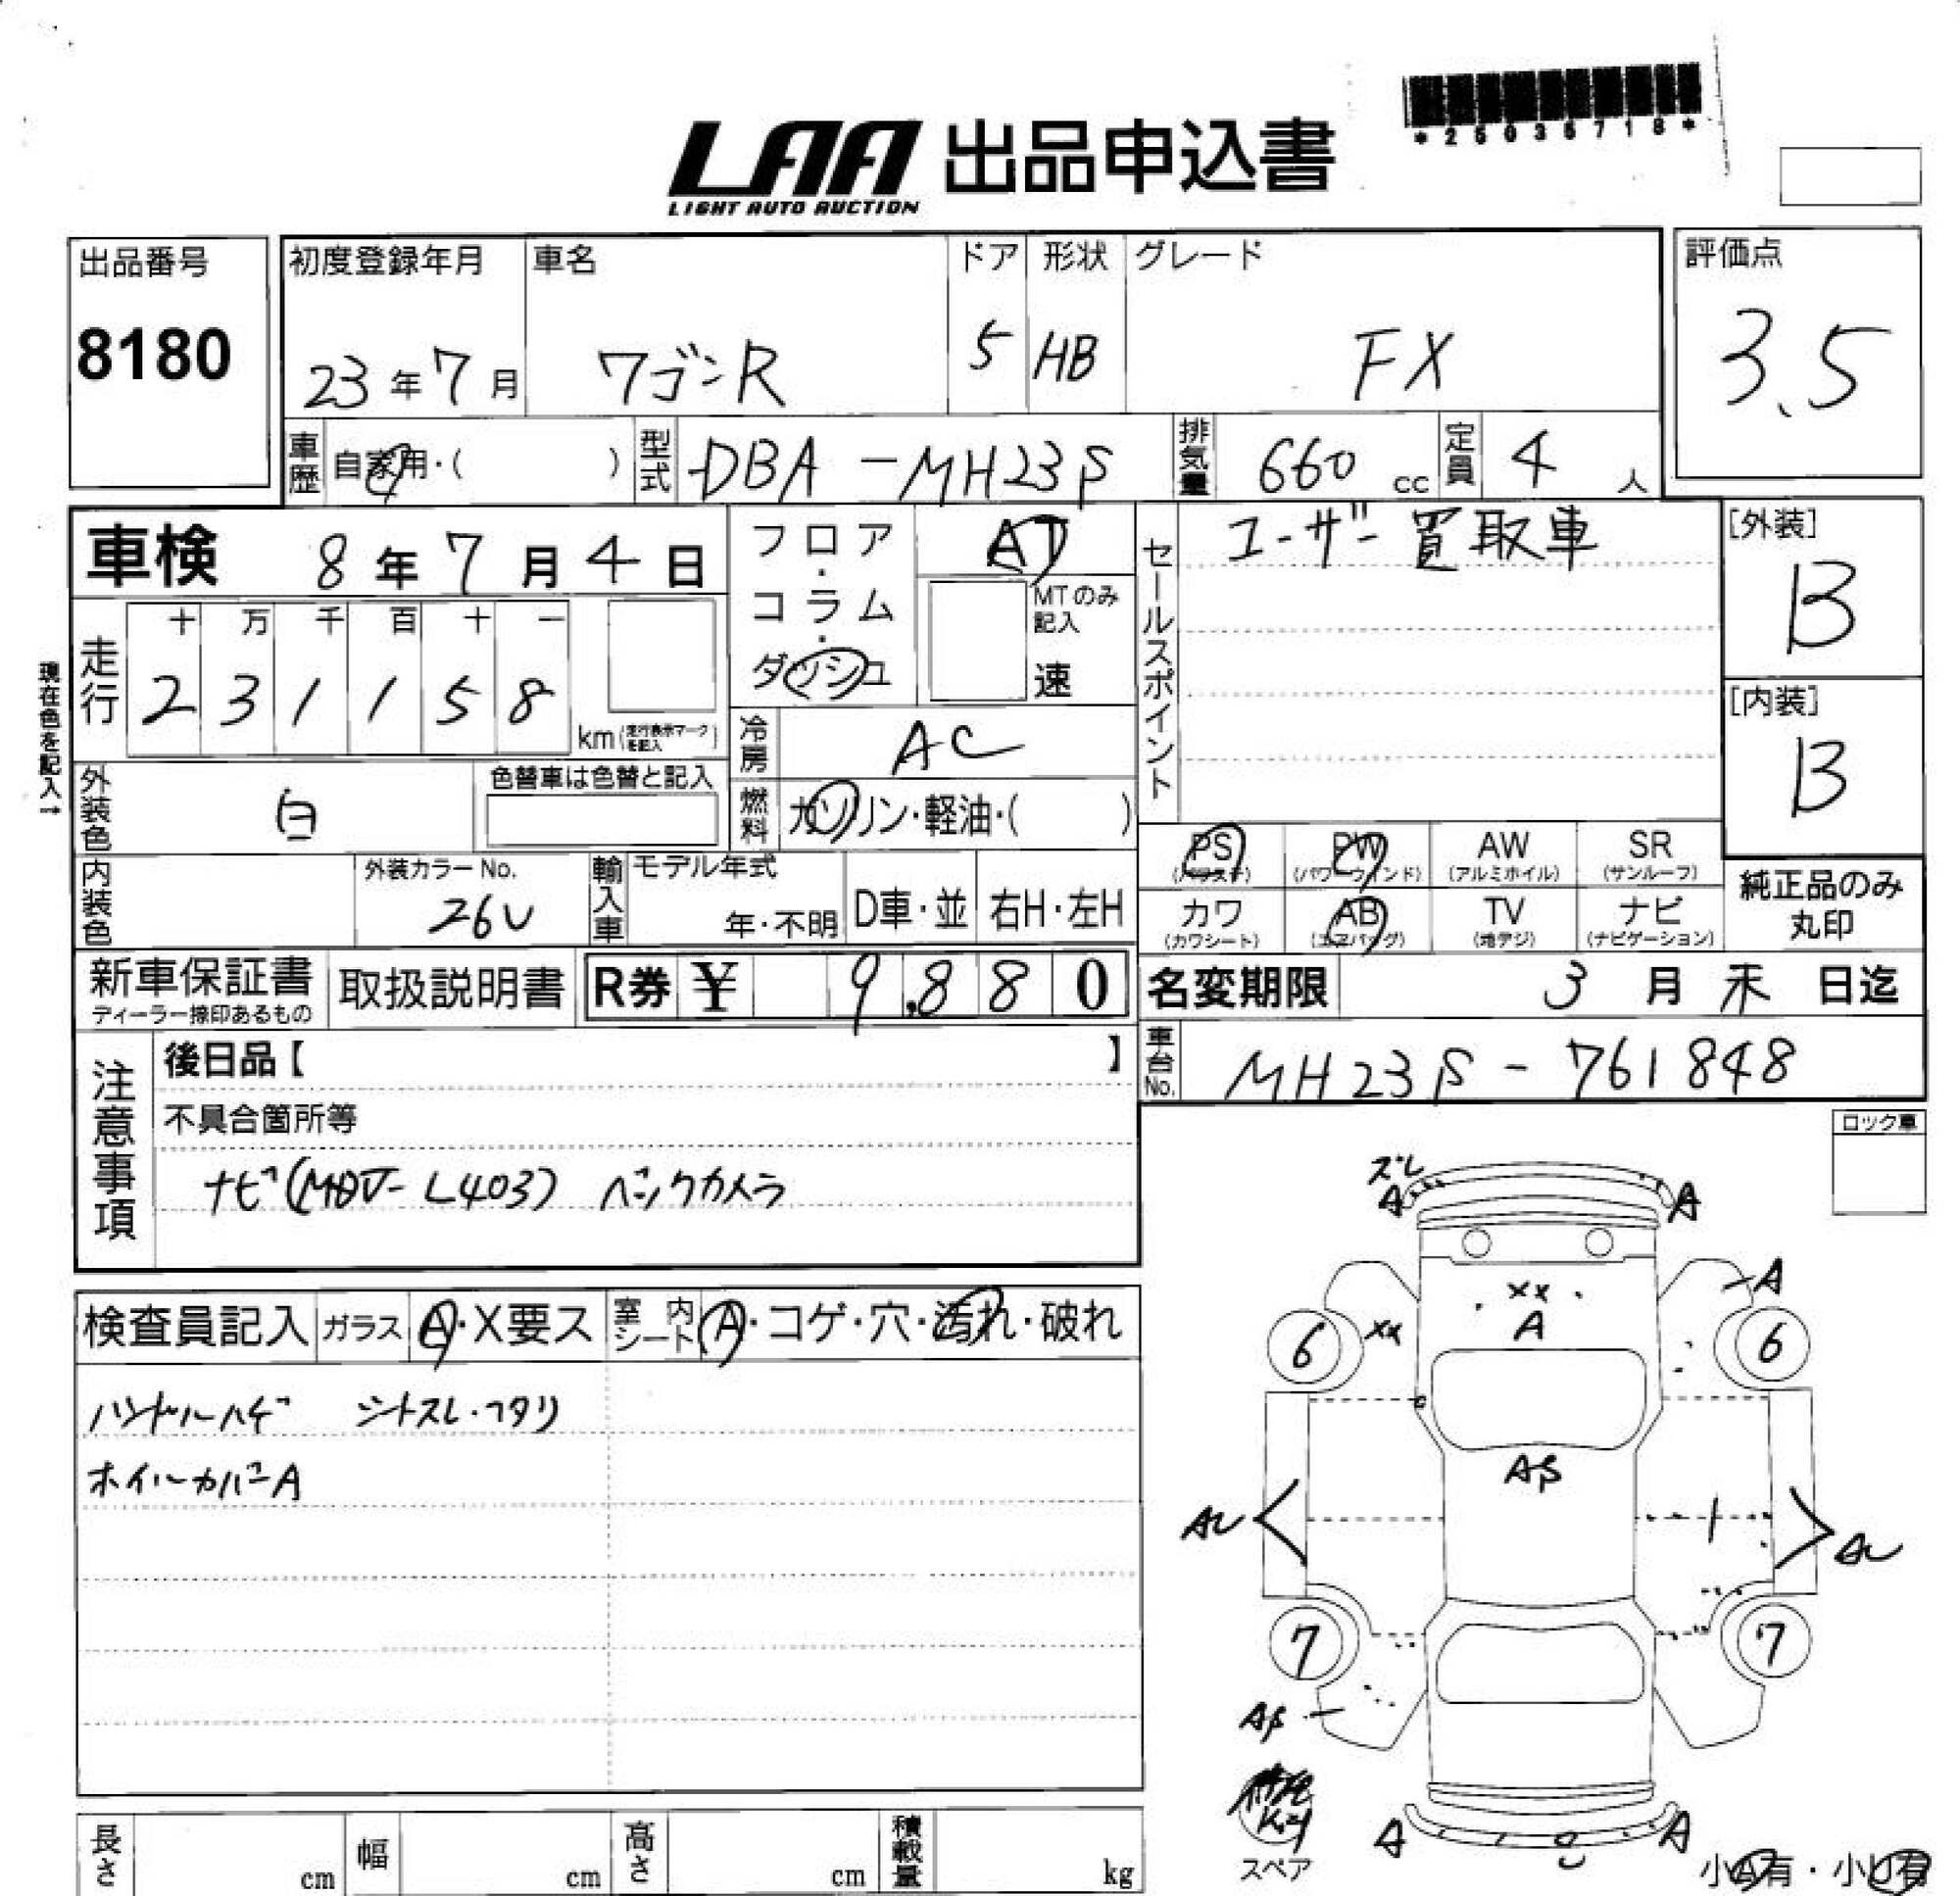 *25035718*
LAA 出品申込書
LIGHT AUTO AUCTION
出品番号
8180
初度登録年月
23年7月
車名
ワゴンR
ドア
5
形状
HB
グレード
FX
評価点
3.5
車歴
自家用・( )
型式
DBA-MH23S
排気量
660 cc
定員
4 人
車検 8年7月4日
フロア・コラム・ダッシュ
AT
MTのみ記入
速
セールスポイント
ユーザー買取車
[外装]
B
[内装]
B
現在色を記入→
走行
十 万 千 百 十 一
2 3 1 1 5 8
km(走行表示マークを記入)
冷房
AC
外装色
白
色替車は色替と記入
燃料
ガソリン・軽油・( )
内装色
外装カラーNo.
26U
輸入車
モデル年式
年・不明
D車・並
右H・左H
PS
(パワステ)
PW
(パワーウィンド)
AW
(アルミホイル)
SR
(サンルーフ)
カワ
(カワシート)
AB
(エアバッグ)
TV
(地デジ)
ナビ
(ナビゲーション)
純正品のみ
丸印
新車保証書
ディーラー捺印あるもの
取扱説明書
R券 ¥ 9,880
名変期限 3月末日迄
車台No.
MH23S-761848
注意事項
後日品【 】
不具合箇所等
ナビ(MDV-L403) バックカメラ
ロック車
検査員記入
ガラス
A・X要ス
室内シート
A・コゲ・穴・汚れ・破れ
ハンドルハゲ シートスレ・ヘタリ
ホイールカバーA
ズレ
A
A
A
XX
A
XX
6
6
AS
AU
AU
7
7
AS
スペア
A
A
小A有・小U有
長さ
cm
幅
cm
高さ
cm
積載量
kg